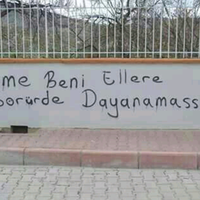 me Beni Ellere
Dayanamass